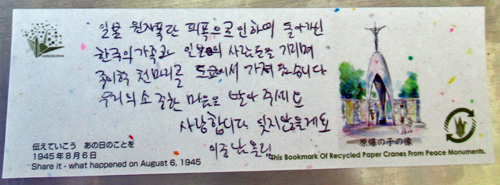 일본 원자폭탄 피폭으로 인하여 돌아가신
한국의 가족과 일본의 사람들을 기리며
종이학 천마리를 도쿄에서 가져 왔습니다
우리의 소중한 마음을 받아 주세요
사랑합니다 잊지않을게요
올림
伝えていこう あの日のことを
1945年8月6日
Share it - what happened on August 6, 1945
原爆の子の像
This Bookmark Of Recycled Paper Cranes From Peace Monuments.